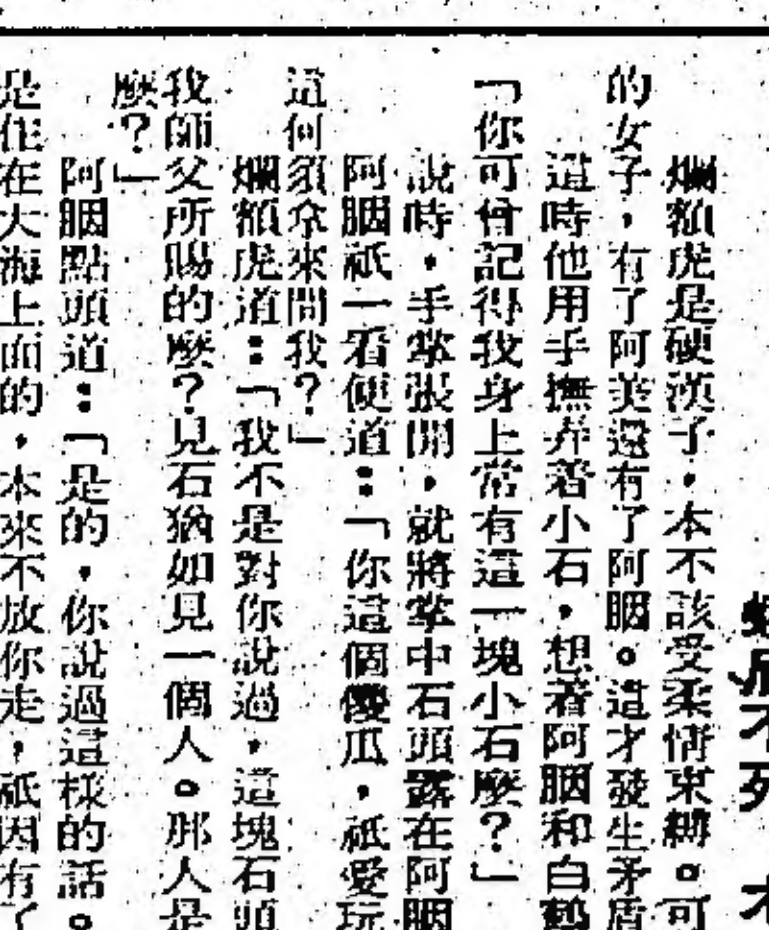 死
爛額虎是硬漢子，本不該受柔情束縛。可
的女子，有了阿美還有了阿胭。這才發生矛盾
這時他用手撫弄着小石，想着阿胭和白鶴
「你可曾記得我身上常有這一塊小石麼？」
說時，手掌張開，就將掌中石頭露在阿胭
阿胭祇一看便道：「你這個傻瓜，祇愛玩
這何須拿來問我？」
爛額虎道：「我不是對你說過，這塊石頭
我師父所賜的麼？見石猶如見一個人。那人是
麼？」
阿胭點頭道：「是的，你說過這樣的話。
是住在大海上面的，本來不放你走，祇因有了